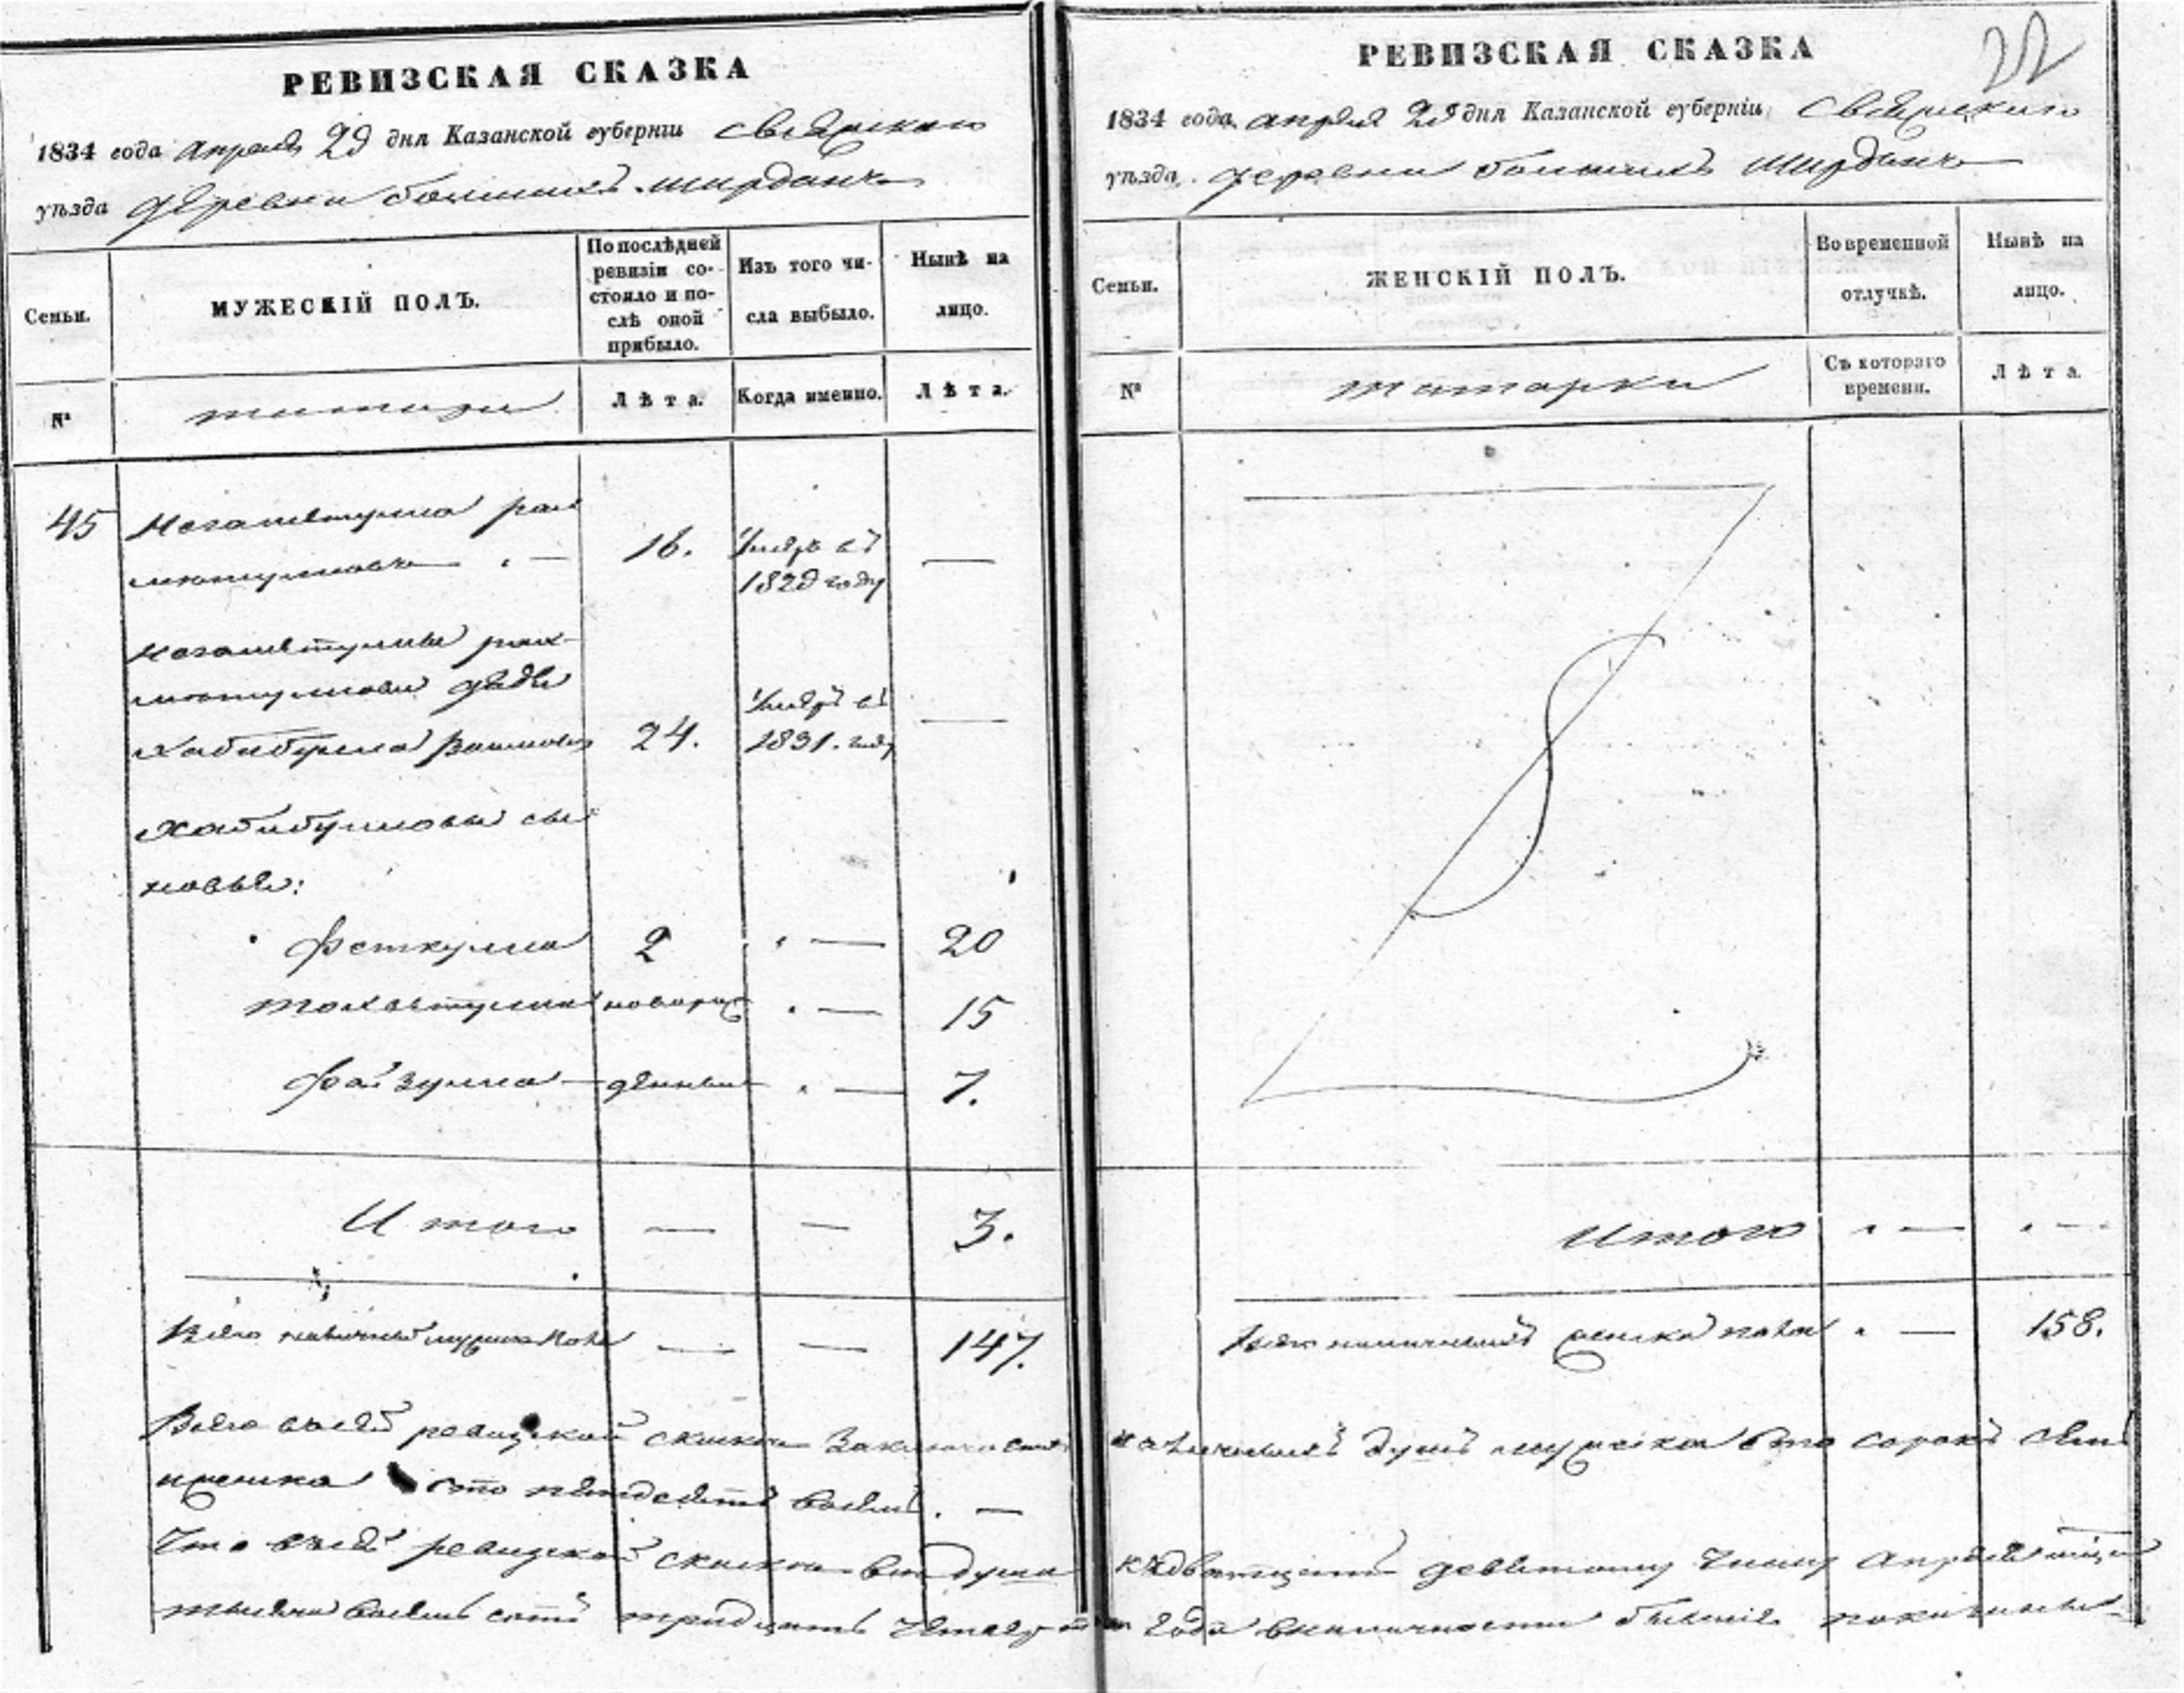 РЕВИЗСКАЯ СКАЗКА
1834 года апреля 29 дня Казанской губерніи Свіяжскаго
уѣзда деревни большихъ Ширданъ
Семьи.
МУЖЕСКІЙ ПОЛЪ.
По послѣдней ревизіи состояло и послѣ оной прибыло.
Изъ того числа выбыло.
Нынѣ на лицо.
№
татары
Лѣта.
Когда именно.
Лѣта.
45
16. Умеръ въ
1829 году
дядя
Хабибулла 24. Умеръ въ 1831. году
Хабибулловы сы
новья:
Феткулла 2 — 20
новорож — 15
Файзулла — денны — 7.
Итого — — 3.
Всего наличныхъ мужска пола — — 147.
РЕВИЗСКАЯ СКАЗКА
22
1834 года апреля 29 дня Казанской губерніи, Свіяжскаго
уѣзда. деревни большихъ Ширданъ
Семьи.
ЖЕНСКІЙ ПОЛЪ.
Во временной отлучкѣ.
Нынѣ на лицо.
№
татарки
Съ котораго времени.
Лѣта.
Итого — —
Всего наличныхъ женска пола — 158.
Всего въ сей ревизской сказке заключается наличныхъ душъ мужска сто сорокъ семь
и женска сто пятдесятъ восемь. —
Что въ сей ревизской сказке все души к двадцать девятому числу Апреля месяца
тысяча восемь сотъ тридцать четвертаго года в наличности бывшие показаны